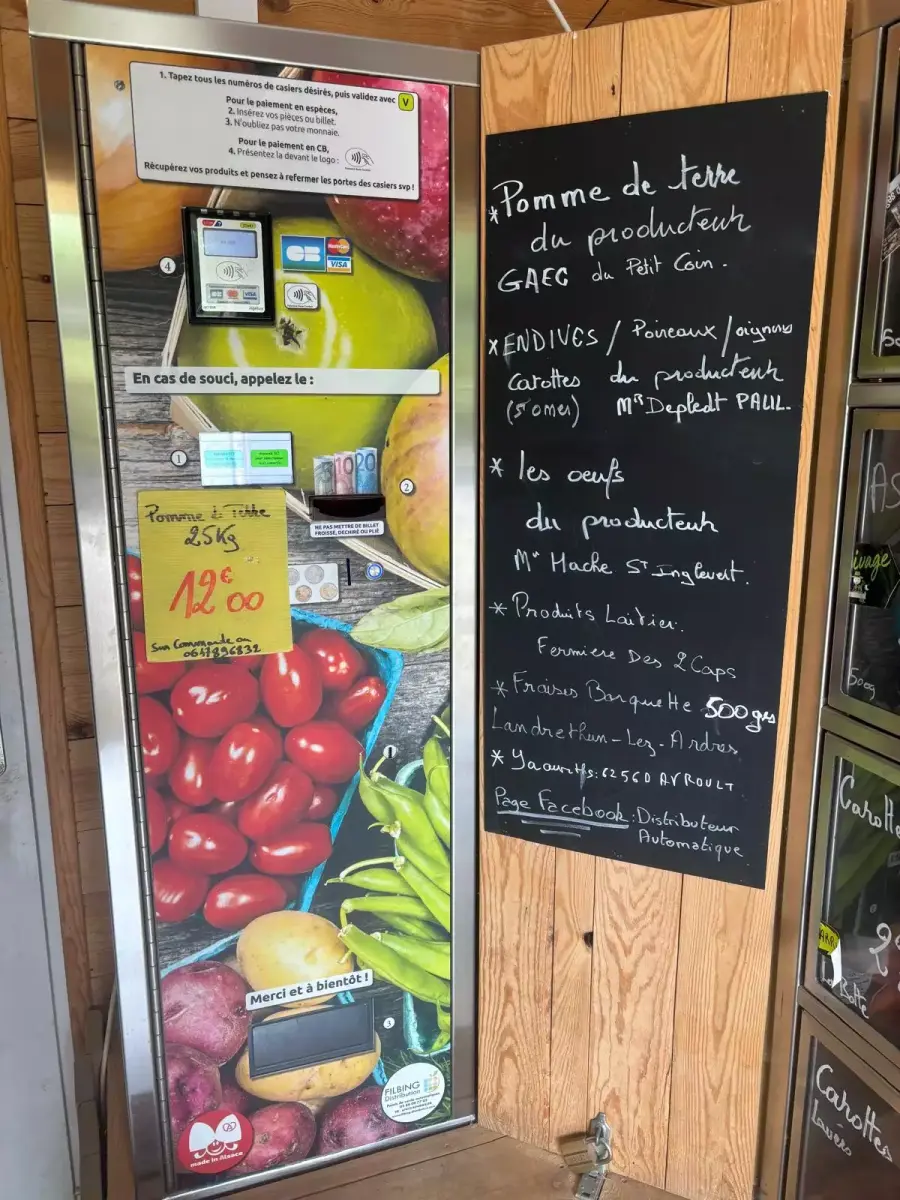 1. Tapez tous les numéros de casiers désirés, puis validez avec V
Pour le paiement en espèces,
2. Insérez vos pièces ou billet.
3. N'oubliez pas votre monnaie.
Pour le paiement en CB,
4. Présentez la devant le logo :
Récupérez vos produits et pensez à refermer les portes des casiers svp !
4
CB
MasterCard
VISA
En cas de souci, appelez le :
1
5 10 20
2
NE PAS METTRE DE BILLET
FROISSÉ, DÉCHIRÉ OU PLIÉ
Pomme de Terre
25Kg
12€00
Sur Commande au
0617896832
Merci et à bientôt !
3
FILBING
Distribution
made in Alsace
*Pomme de terre
du producteur
GAEC du Petit Coin.
*ENDIVES / Poireaux / oignons
Carottes du producteur
(St omer) Mr Depledt PAUL.
* les oeufs
du producteur
Mr Hache St Inglevert.
* Produits Laitier:
Fermiere Des 2 Caps
* Fraises Barquette 500grs
Landrethun-Lez-Ardres
* Yaourts: 62560 AVROULT
Page Facebook: Distributeur
Automatique
500g
Carotte
La Botte
Carottes
Lavées